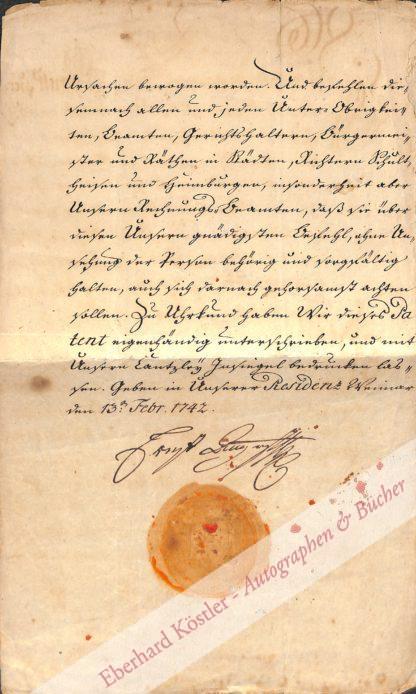 Ursachen bewogen worden. Und befehlen die-
semnach allen und jeden Unter-Obrigkei-
ten, Beamten, Gerichtshaltern, Bürgermei-
ster und Räthen in Städten, Richtern Schult-
heisen und Heimburgen, insonderheit aber
Unsern Rechnungs-Beamten, daß sie über
diesen Unsern gnädigsten Befehl, ohne An-
sehung der Person behörig und sorgfältig
halten, auch sich darnach gehorsamst achten
sollen. Zu Uhrkund haben Wir dieses Pa
tent eigenhändig unterschrieben, und mit
Unsern Cantzley Insiegel bedrucken las-
sen. Geben in Unserer Residenz Weimar
den 13. Febr. 1742.
Ernst August
Eberhard Köstler - Autographen & Bücher